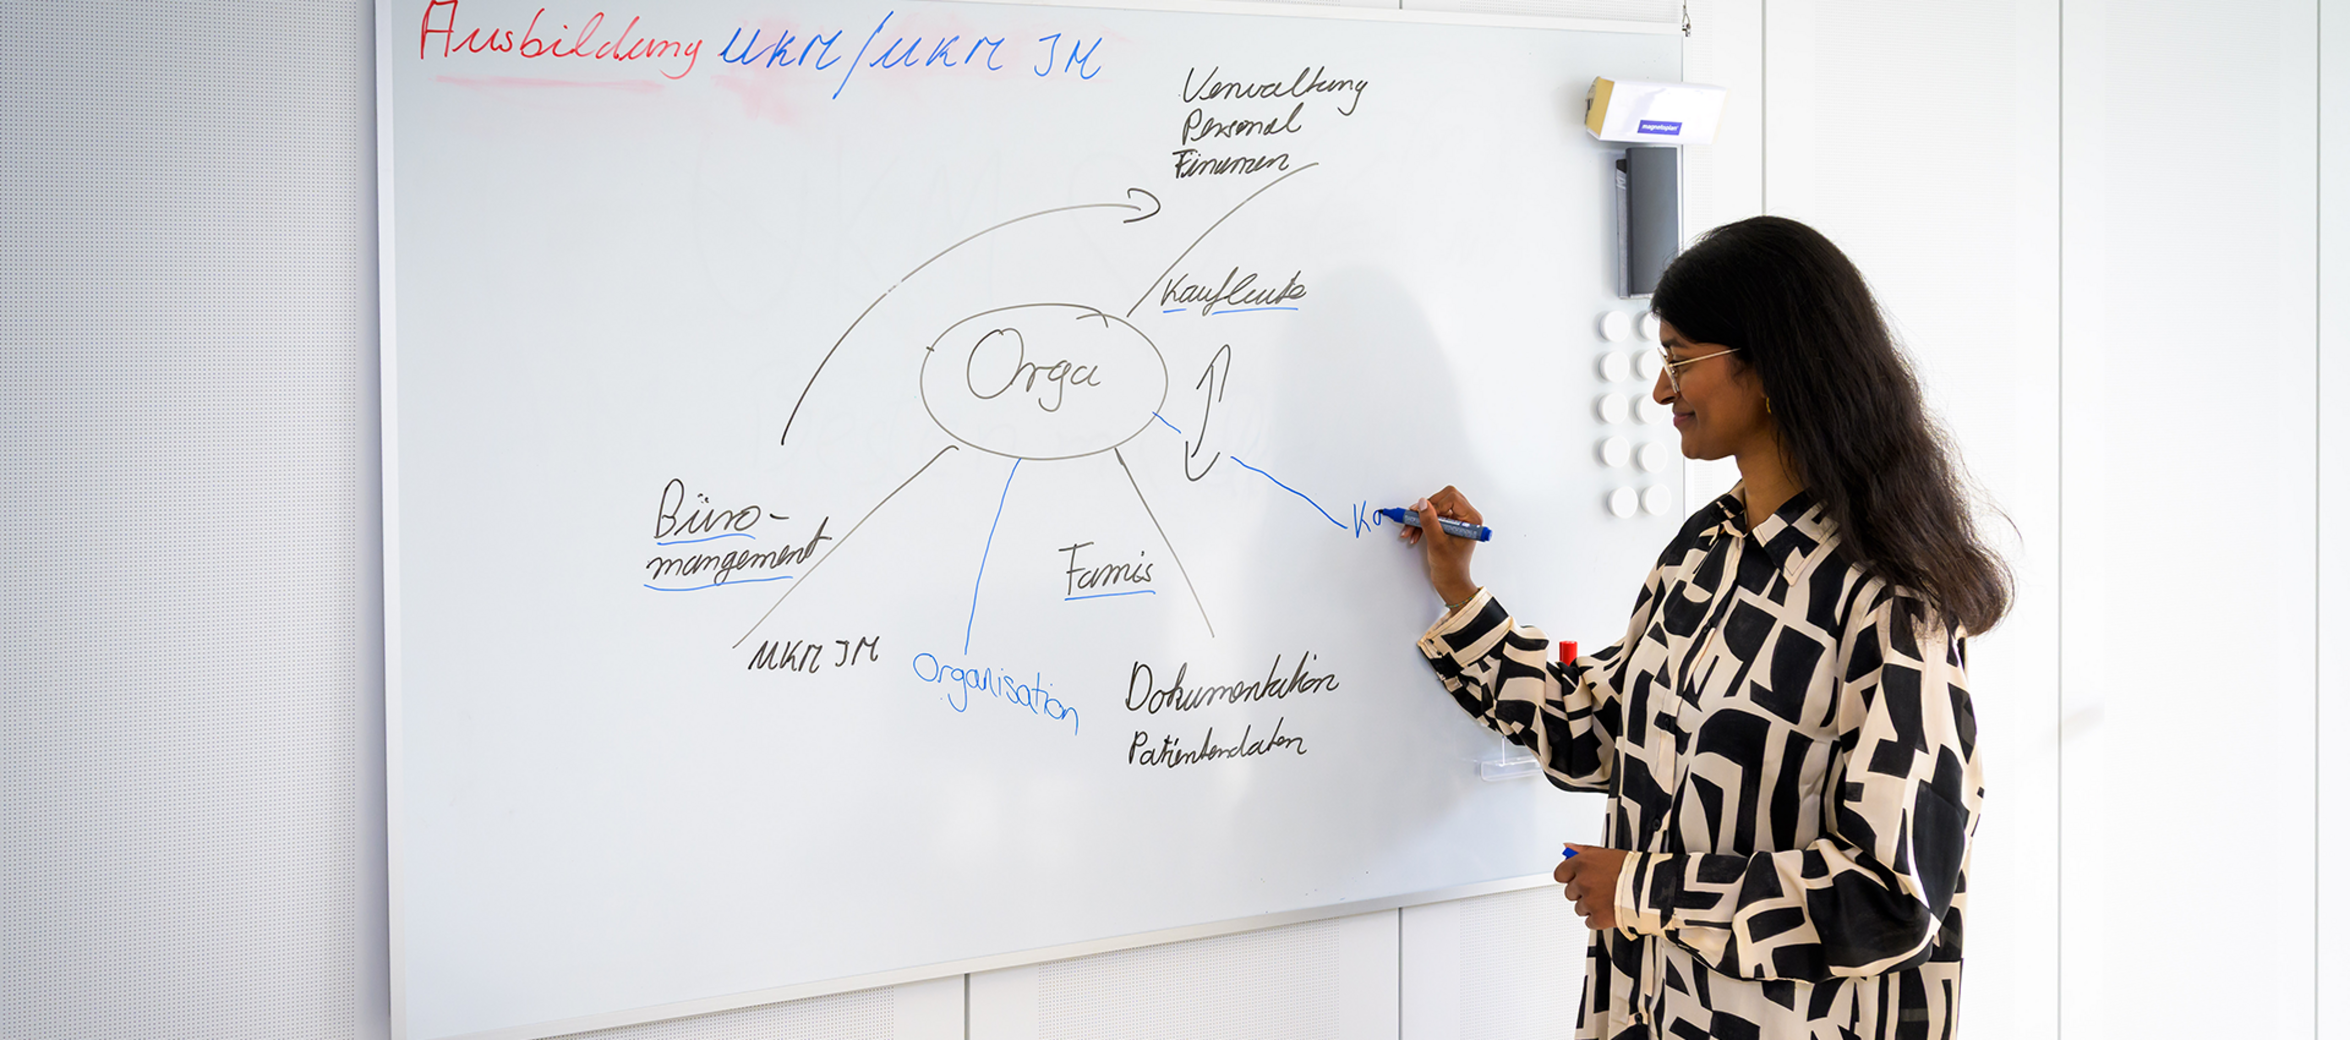 Ausbildung UKM/UKM IM
Verwaltung
Personal
Finanzen
magnetoplan
Kaufleute
Orga
Büro-
mangement
Ko
Famis
UKM IM
Organisation
Dokumentation
Patientendaten